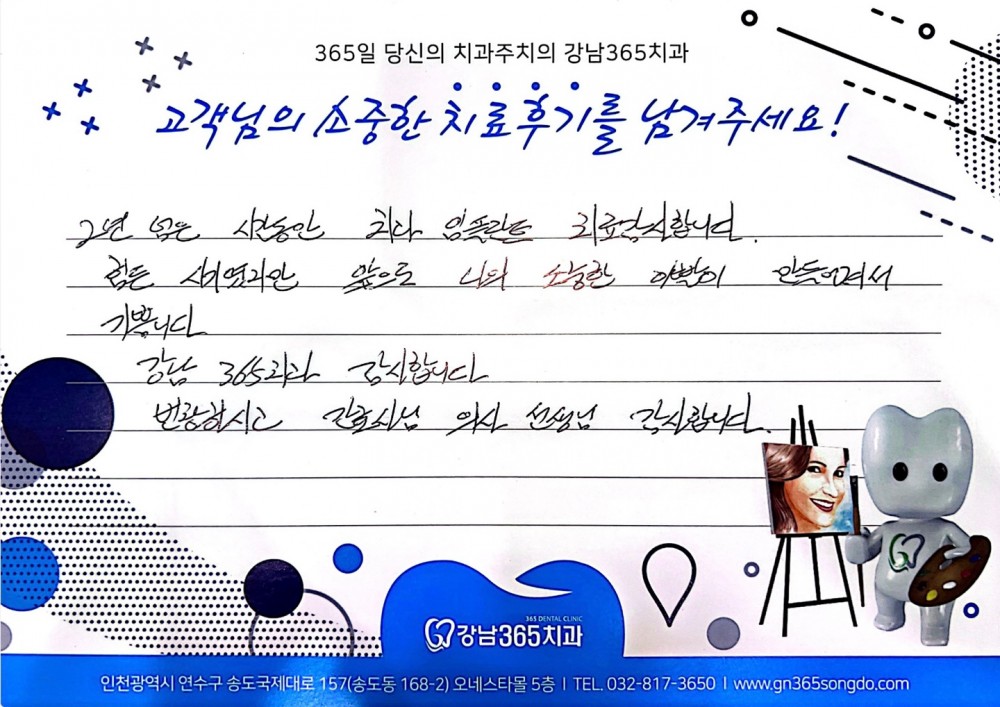 365일 당신의 치과주치의 강남365치과
고객님의 소중한 치료후기를 남겨주세요!
2년 넘은 시간동안 치과 임플란트 치료감사합니다.
힘든 시기였지만 앞으로 나의 소중한 이빨이 만들어져서
기쁩니다
강남 365치과 감사합니다
번창하시고 간호사님 의사 선생님 감사합니다.
365 DENTAL CLINIC
강남365치과
인천광역시 연수구 송도국제대로 157(송도동 168-2) 오네스타몰 5층 | TEL. 032-817-3650 | www.gn365songdo.com